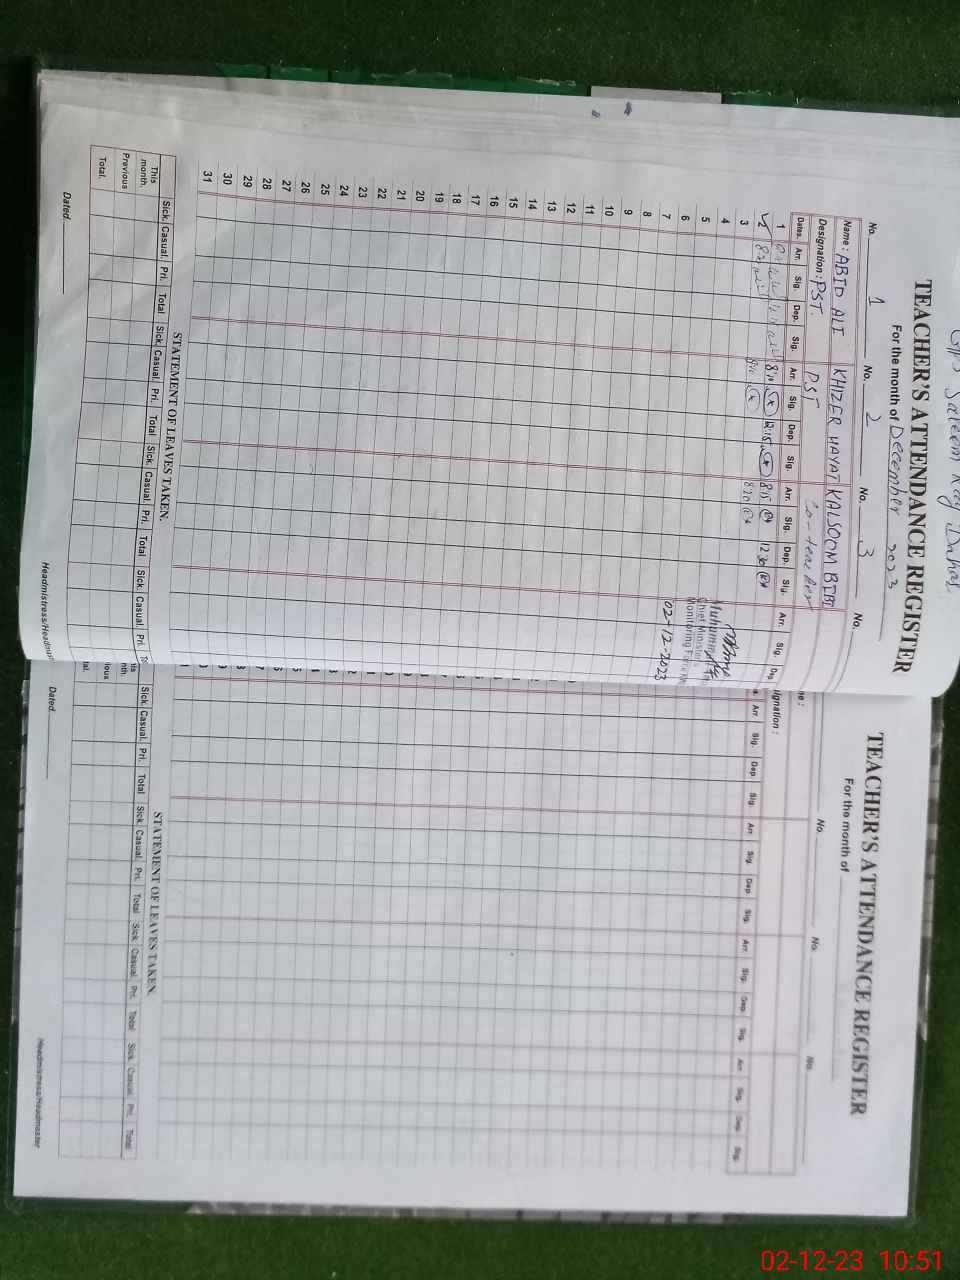 GPS Saleem Kay
TEACHER'S ATTENDANCE REGISTER
For the month of December 2023
No. 1 No. 2 No. 3 No.
Name: ABID ALI KHIZER HAYAT KALSOOM BIBI
Designation: PST. PST Co-teacher
Dates. Arr. Sig. Dep. Sig. Arr. Sig. Dep. Sig. Arr. Sig. Dep. Sig. Arr. Sig. Dep
1 8:10 12:15 8:15 12:30
2 8:10 8:20
3
4
5
6
7
8
9
10
11
12
13
14
15
16
17
18
19
20
21
22
23
24
25
26
27
28
29
30
31
Chief Minister's
Monitoring Force
02-12-2023
STATEMENT OF LEAVES TAKEN.
Sick. Casual. Pri. Total Sick. Casual. Pri. Total Sick. Casual. Pri. Total Sick. Casual. Pri.
This month.
Previous
Total.
Dated. Headmistress/Headm
TEACHER'S ATTENDANCE REGISTER
For the month of
No. No. No.
me:
signation:
Arr. Sig. Dep Sig. Arr Sig. Dep Sig. Arr. Sig. Dep. Sig. Arr. Sig. Dep Sig.
STATEMENT OF LEAVES TAKEN.
Sick. Casual. Pri. Total Sick. Casual. Pri. Total Sick. Casual. Pri. Total Sick. Casual. Pri. Total
his
nth.
ious
tal.
Dated. Headmistress/Headmaster
02-12-23 10:51